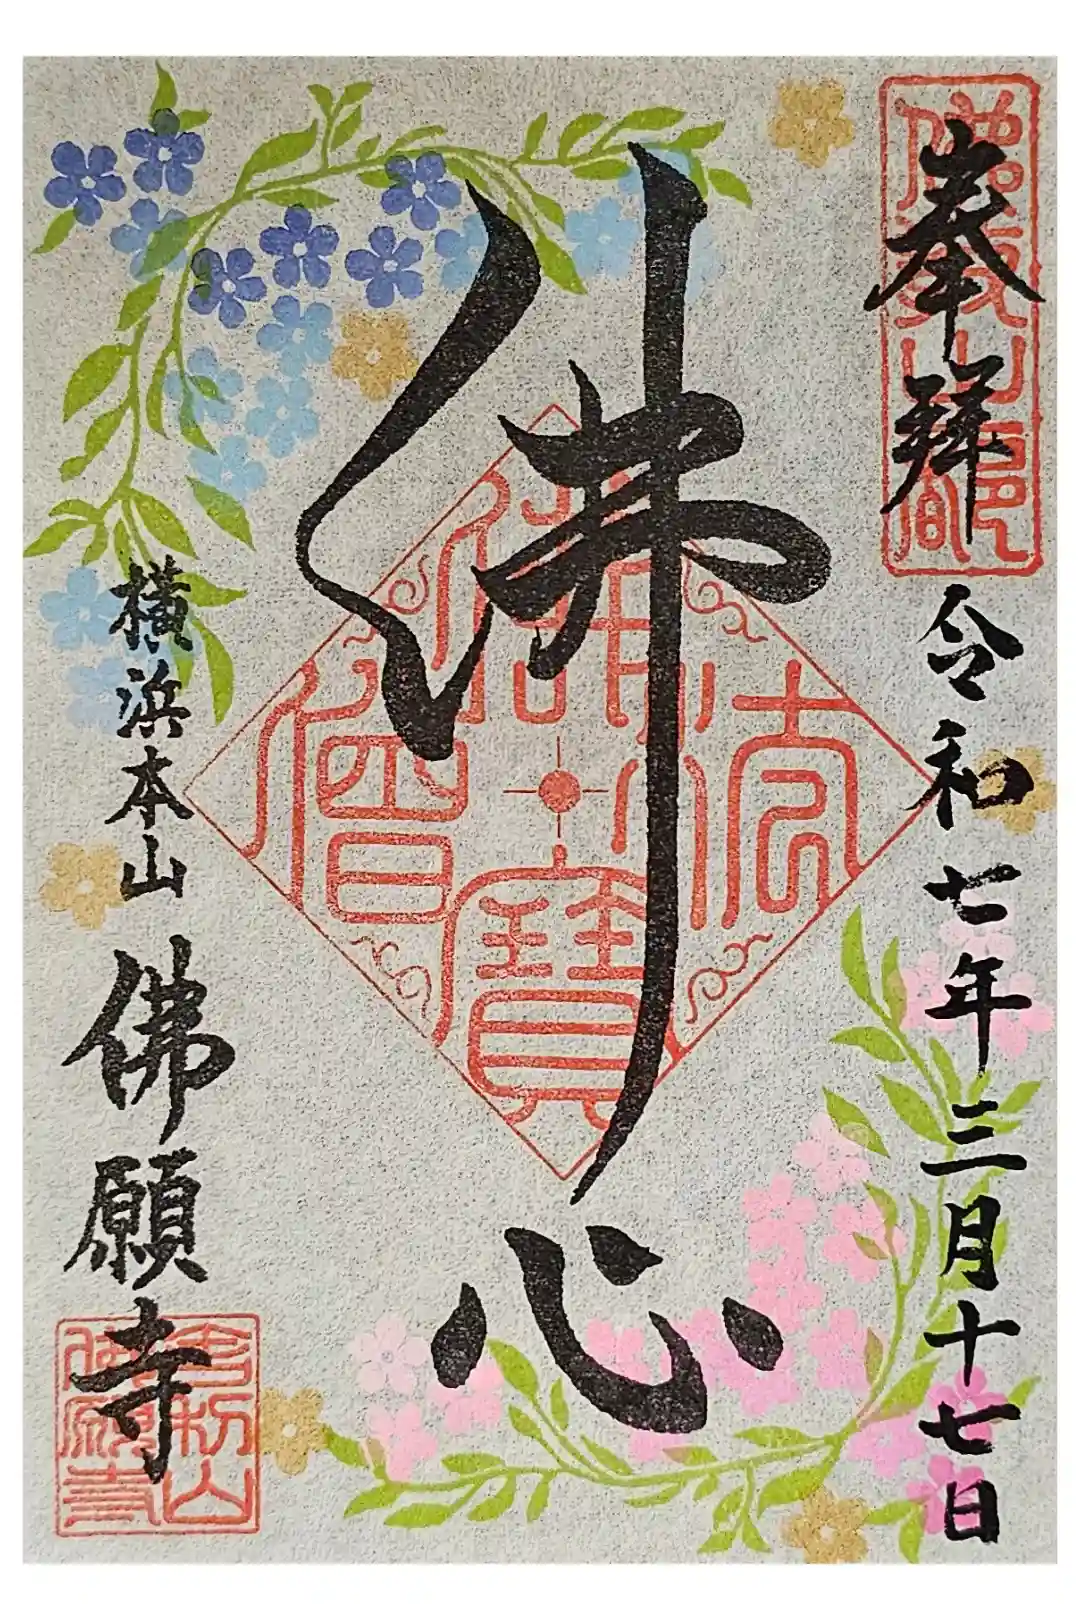 奉拝
令和七年三月十七日
佛心
佛法僧寳
横浜本山 佛願寺